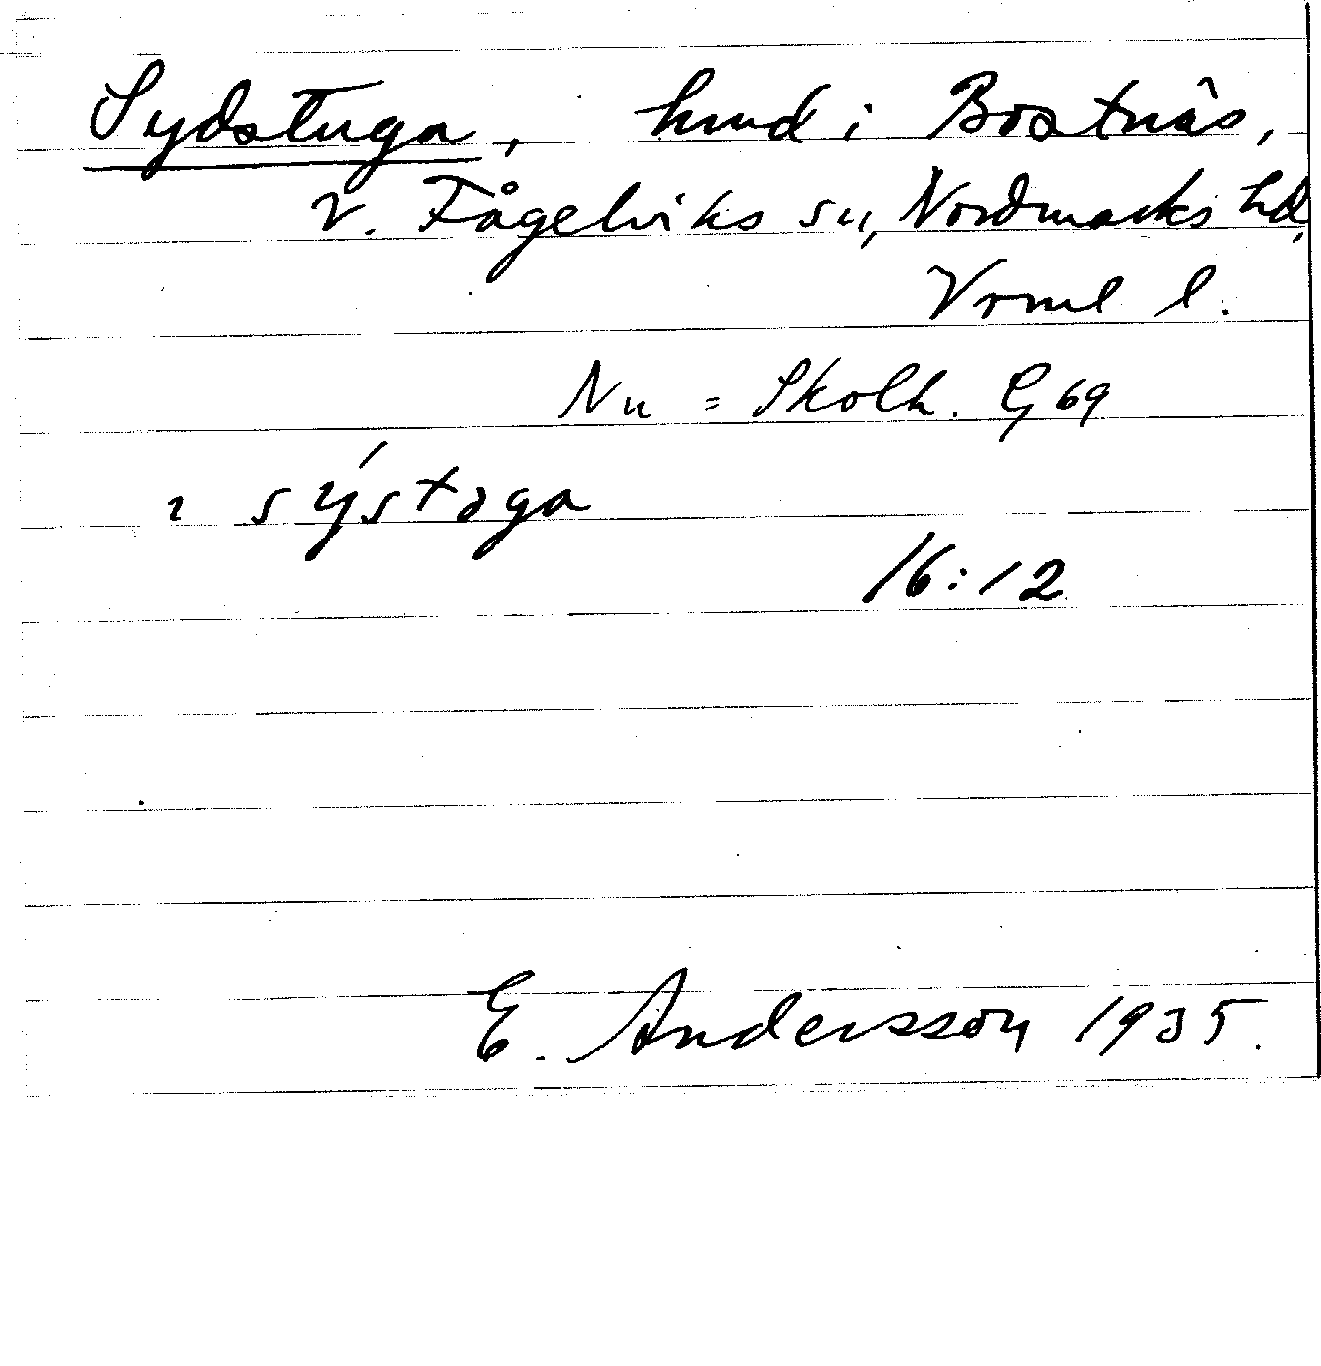 Sydstuga, hmd i Bostnäs,
V. Fågelviks sn, Nordmarks hd,
Vrml l.
Nu = Skolh. G 69
ı sýstoga
16:12
E. Andersson 1935.